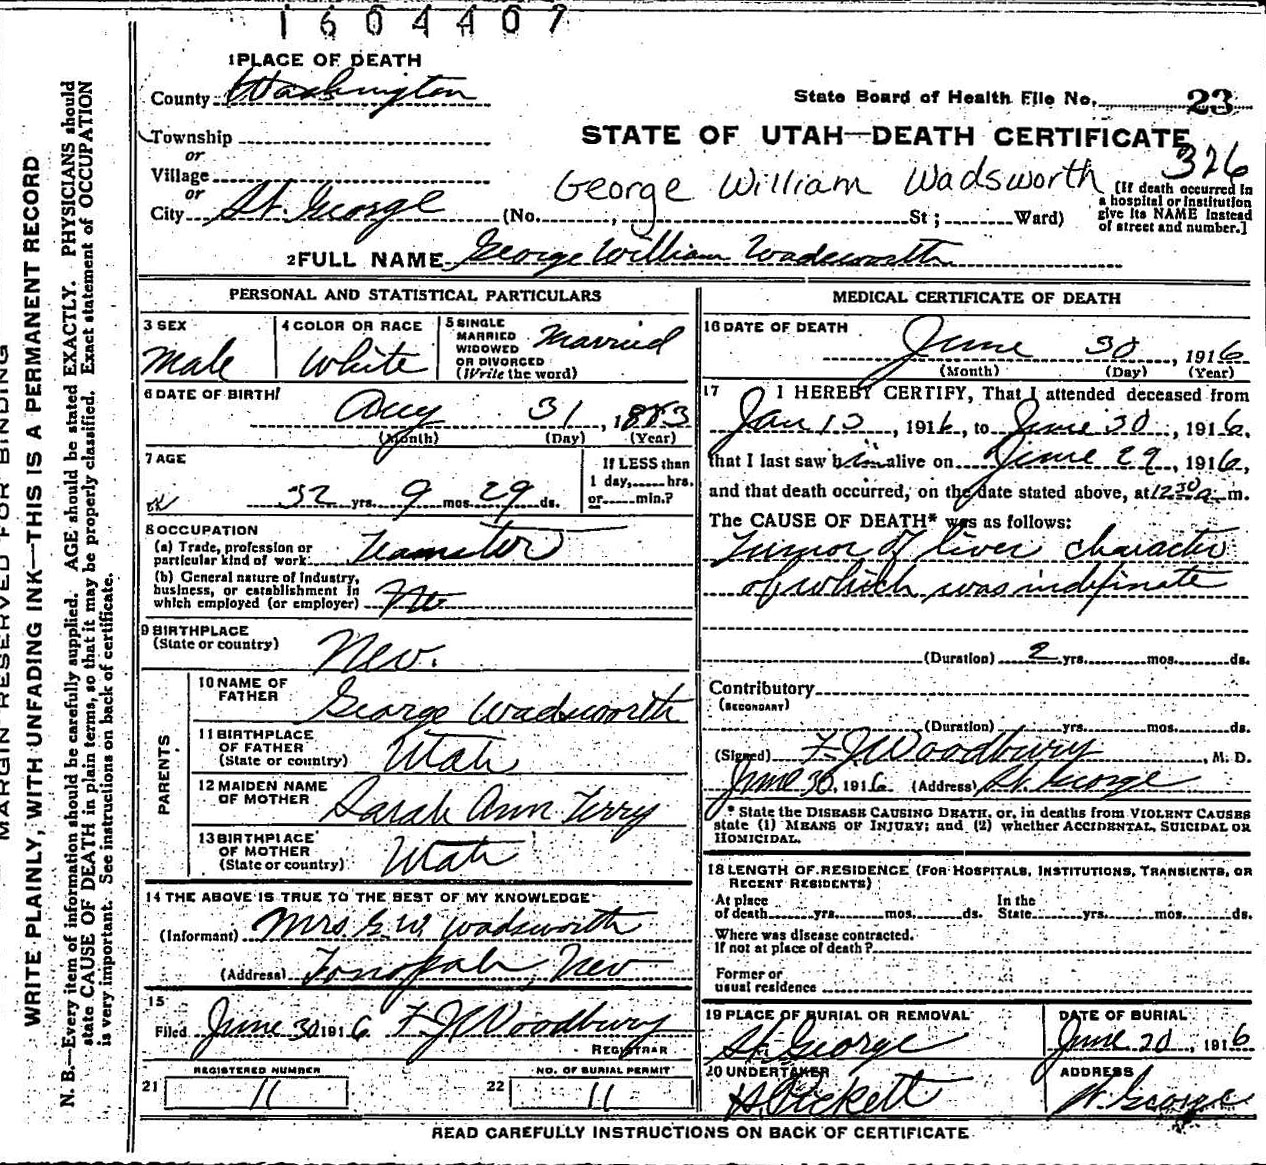 1604407
1 PLACE OF DEATH
County Washington
State Board of Health File No. 23
Township
STATE OF UTAH—DEATH CERTIFICATE
or
326
Village
George William Wadsworth
or
[If death occurred in a hospital or institution give its NAME instead of street and number.]
City St. George (No. , St ; Ward)
2 FULL NAME George William Wadsworth
PERSONAL AND STATISTICAL PARTICULARS
3 SEX
Male
4 COLOR OR RACE
White
5 SINGLE
MARRIED
WIDOWED
OR DIVORCED
(Write the word)
Married
6 DATE OF BIRTH
Aug 31, 1883
(Month) (Day) (Year)
7 AGE
32 yrs. 9 mos. 29 ds.
If LESS than
1 day, hrs.
or min.?
8 OCCUPATION
(a) Trade, profession or
particular kind of work Teamster
(b) General nature of Industry,
business, or establishment in
which employed (or employer)
9 BIRTHPLACE
(State or country) Nev.
PARENTS
10 NAME OF
FATHER George Wadsworth
11 BIRTHPLACE
OF FATHER
(State or country) Utah
12 MAIDEN NAME
OF MOTHER Sarah Ann Terry
13 BIRTHPLACE
OF MOTHER
(State or country) Utah
14 THE ABOVE IS TRUE TO THE BEST OF MY KNOWLEDGE
(Informant) Mrs. G. W. Wadsworth
(Address) Tonopah, Nev
15
Filed June 30 1916 F. J. Woodbury
REGISTRAR
REGISTERED NUMBER
21 11
NO. OF BURIAL PERMIT
22 11
MEDICAL CERTIFICATE OF DEATH
16 DATE OF DEATH
June 30, 1916
(Month) (Day) (Year)
17 I HEREBY CERTIFY, That I attended deceased from
Jan 13, 1916, to June 30, 1916,
that I last saw him alive on June 29, 1916,
and that death occurred, on the date stated above, at 12 30 a. m.
The CAUSE OF DEATH* was as follows:
Tumor of liver character
of which was indefinate
(Duration) 2 yrs. mos. ds.
Contributory
(SECONDARY)
(Duration) yrs. mos. ds.
(Signed) F. J. Woodbury, M. D.
June 30, 1916 (Address) St. George
* State the DISEASE CAUSING DEATH, or, in deaths from VIOLENT CAUSES
state (1) MEANS OF INJURY; and (2) whether ACCIDENTAL, SUICIDAL OR
HOMICIDAL.
18 LENGTH OF RESIDENCE (FOR HOSPITALS, INSTITUTIONS, TRANSIENTS, OR
RECENT RESIDENTS)
At place
of death yrs. mos. ds. In the
State yrs. mos. ds.
Where was disease contracted.
If not at place of death?
Former or
usual residence
19 PLACE OF BURIAL OR REMOVAL
St. George
DATE OF BURIAL
June 20, 1916
20 UNDERTAKER
Pickett
ADDRESS
St. George
READ CAREFULLY INSTRUCTIONS ON BACK OF CERTIFICATE
MARGIN RESERVED FOR BINDING
WRITE PLAINLY, WITH UNFADING INK—THIS IS A PERMANENT RECORD
N. B.—Every item of information should be carefully supplied. AGE should be stated EXACTLY. PHYSICIANS should
state CAUSE OF DEATH in plain terms, so that it may be properly classified. Exact statement of OCCUPATION
is very important. See instructions on back of certificate.